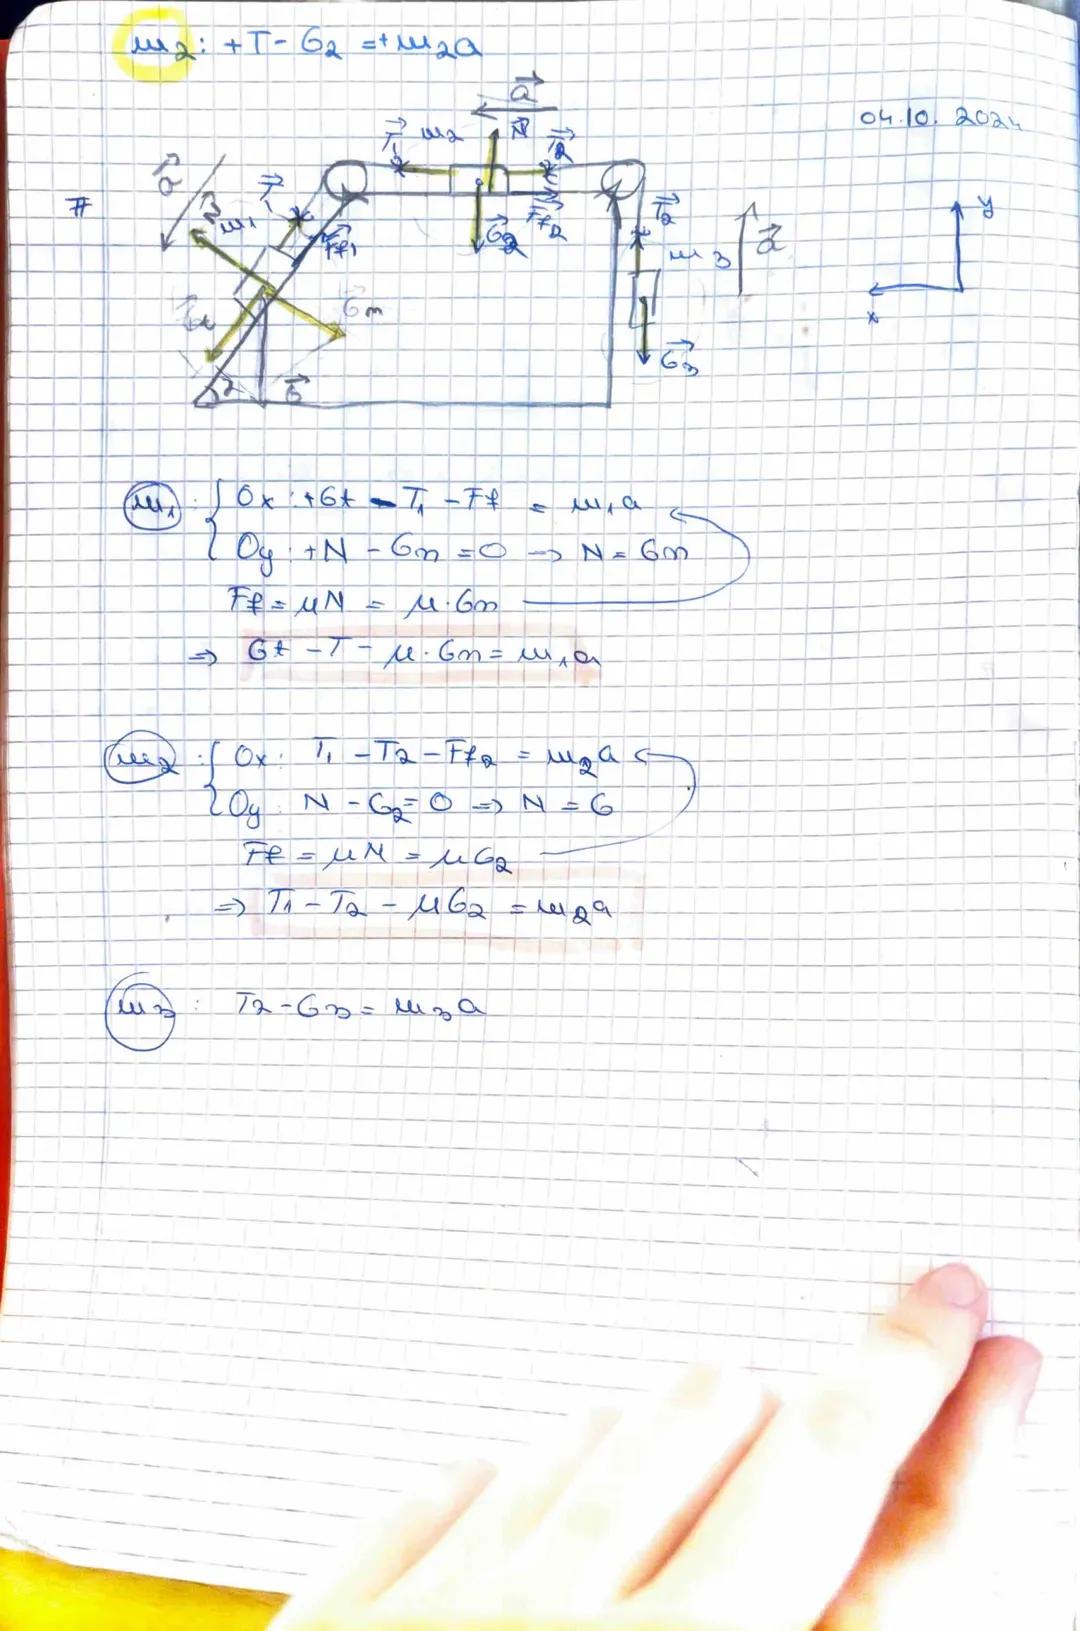 m₂: +T - G₂ = + m₂a
04.10.2024
#
a⃗
T⃗₁ m₂ N⃗ T⃗₂
a⃗ N⃗ m₁ T⃗₁ F⃗f₁ G⃗₂ F⃗f₂ T⃗₂ m₃ a⃗ y
G⃗t G⃗n x
α G⃗ G⃗₃
m₁: { Ox: +Gt - T₁ - Ff = m₁a
Oy: +N - Gn = 0 → N = Gn
Ff = μN = μ·Gn
⇒ Gt - T - μ·Gn = m₁a
m₂: { Ox: T₁ - T₂ - Ff₂ = m₂a
Oy: N - G₂ = 0 ⇒ N = G
Ff = μN = μG₂
⇒ T₁ - T₂ - μG₂ = m₂a
m₃: T₂ - G₃ = m₃a